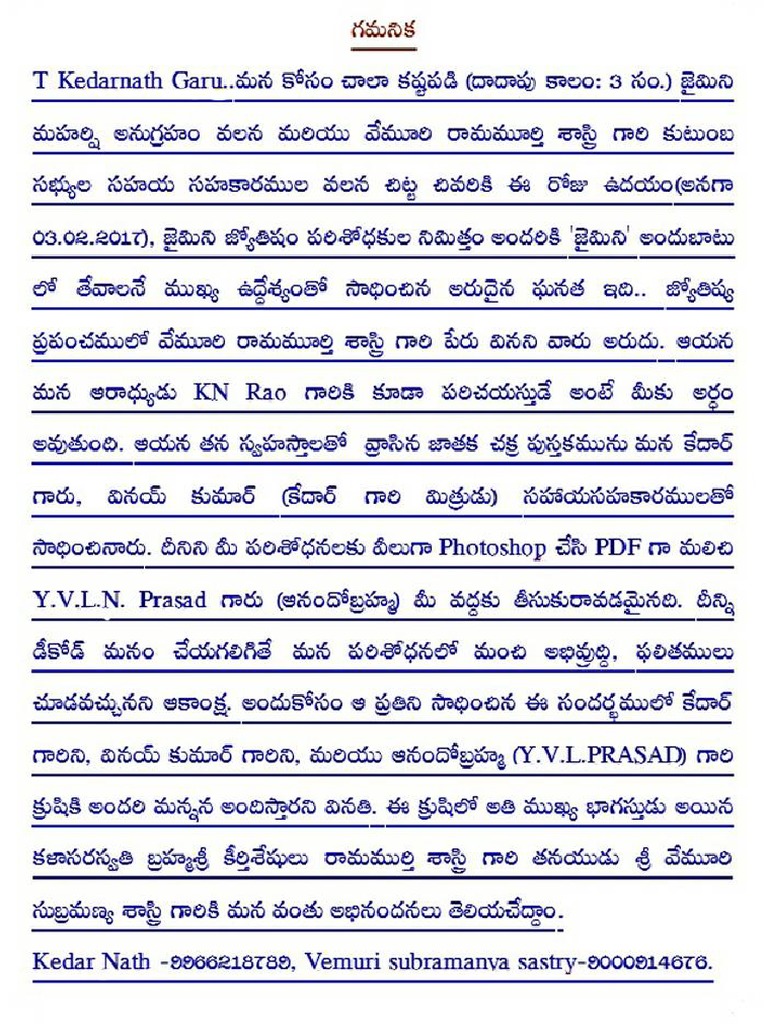 గమనిక
T Kedarnath Garu..మన కోసం చాలా కష్టపడి (దాదాపు కాలం: 3 సం.) జైమిని
మహర్షి అనుగ్రహం వలన మరియు వేమూరి రామమూర్తి శాస్త్రి గారి కుటుంబ
సభ్యుల సహయ సహకారముల వలన చిట్ట చివరికి ఈ రోజు ఉదయం(అనగా
03.02.2017), జైమిని జ్యోతిషం పరిశోధకుల నిమిత్తం అందరికి 'జైమిని' అందుబాటు
లో తేవాలనే ముఖ్య ఉద్దేశ్యంతో సాధించిన అరుదైన ఘనత ఇది.. జ్యోతిష్య
ప్రపంచములో వేమూరి రామమూర్తి శాస్త్రి గారి పేరు వినని వారు అరుదు. ఆయన
మన ఆరాధ్యుడు KN Rao గారికి కూడా పరిచయస్తుడే అంటే మీకు అర్ధం
అవుతుంది. ఆయన తన స్వహస్తాలతో వ్రాసిన జాతక చక్ర పుస్తకమును మన కేదార్
గారు, వినయ్ కుమార్ (కేదార్ గారి మిత్రుడు) సహాయసహకారములతో
సాధించినారు. దీనిని మీ పరిశోధనలకు వీలుగా Photoshop చేసి PDF గా మలిచి
Y.V.L.N. Prasad గారు (ఆనందోబ్రహ్మ) మీ వద్దకు తీసుకురావడమైనది. దీన్ని
డీకోడ్ మనం చేయగలిగితే మన పరిశోధనలో మంచి అభివ్రుద్ది, ఫలితములు
చూడవచ్చునని ఆకాంక్ష. అందుకోసం ఆ ప్రతిని సాధించిన ఈ సందర్భములో కేదార్
గారిని, వినయ్ కుమార్ గారిని, మరియు ఆనందోబ్రహ్మ (Y.V.L.PRASAD) గారి
క్రుషికి అందరి మన్నన అందిస్తారని వినతి. ఈ క్రుషిలో అతి ముఖ్య భాగస్తుడు అయిన
కళాసరస్వతి బ్రహ్మశ్రీ కీర్తిశేషులు రామముర్తి శాస్త్రి గారి తనయుడు శ్రీ వేమూరి
సుబ్రమణ్య శాస్త్రి గారికి మన వంతు అభినందనలు తెలియచేద్దాం.
Kedar Nath -9966218789, Vemuri subramanya sastry-9000914676.